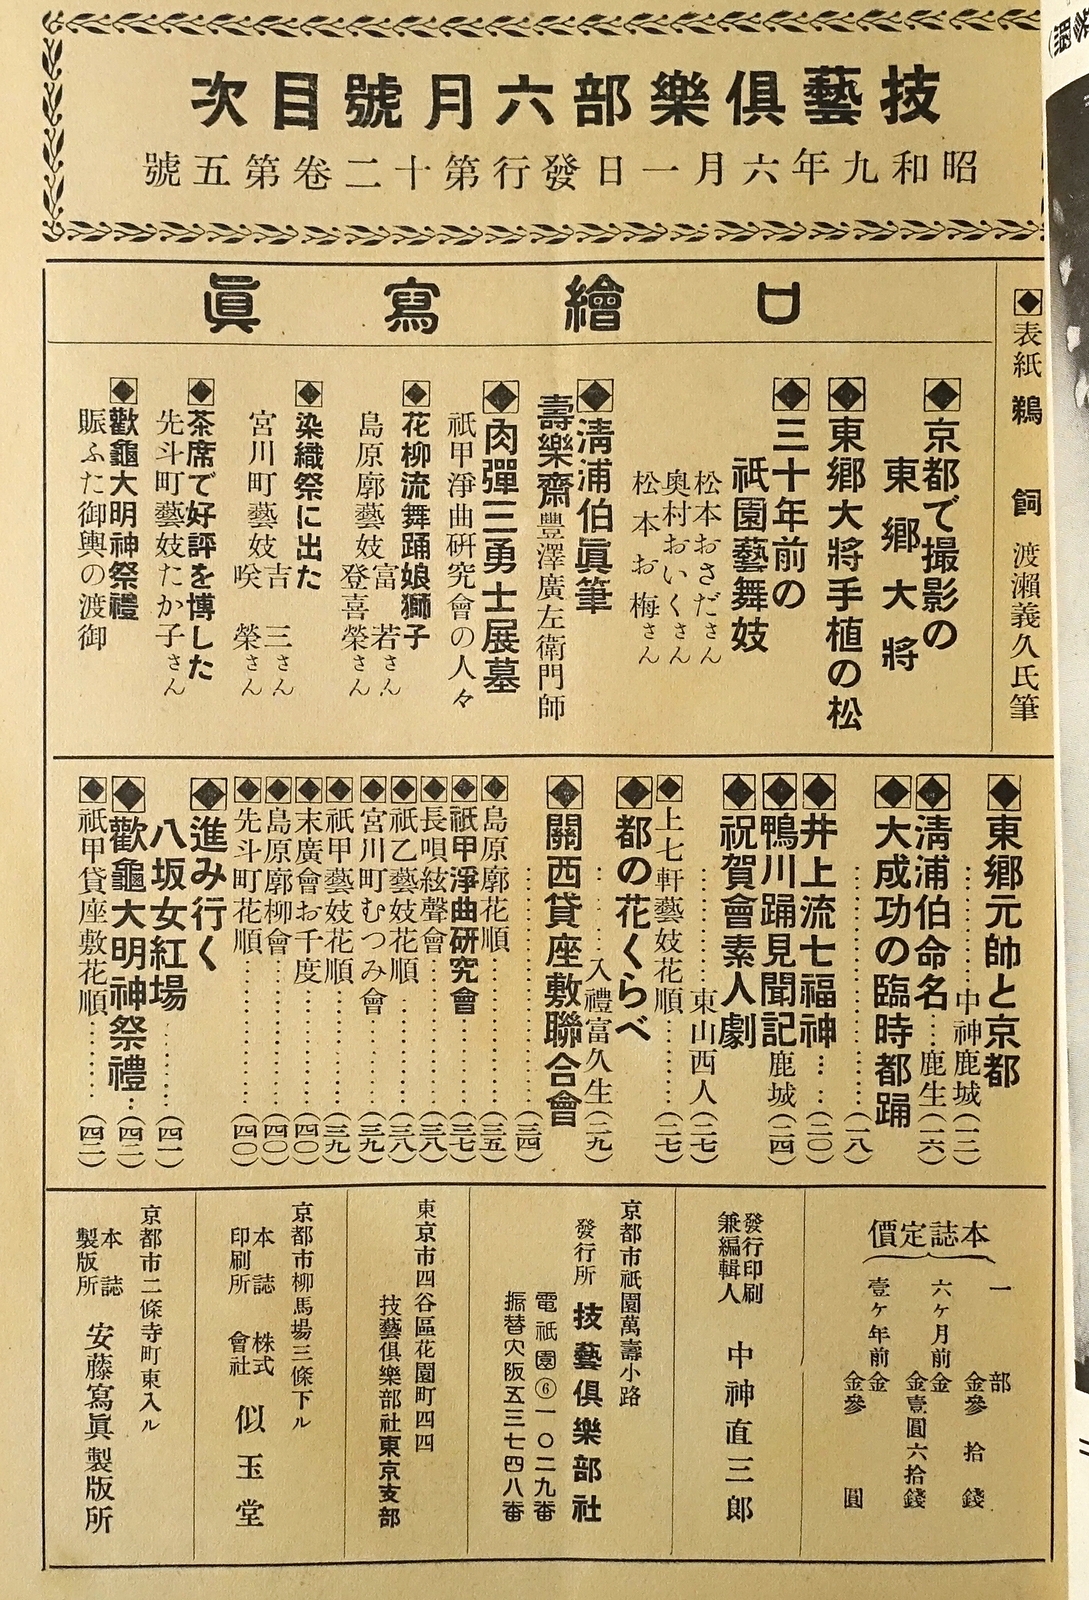 技藝俱樂部六月號目次
昭和九年六月一日發行第十二卷第五號
◆表紙 鵜飼 渡瀨義久氏筆
口繪寫眞
◆京都で撮影の
東鄉大將
◆東鄉大將手植の松
◆三十年前の
祇園藝舞妓
松本おさださん
奧村おいくさん
松本お梅さん
◆淸浦伯眞筆
壽樂齋豐澤廣左衛門師
◆肉彈三勇士展墓
祇甲淨曲硏究會の人々
◆花柳流舞踊娘獅子
島原廓藝妓富若さん
登喜榮さん
◆染織祭に出た
宮川町藝妓吉三さん
咲榮さん
◆茶席で好評を博した
先斗町藝妓たか子さん
◆歡龜大明神祭禮
賑ふた御輿の渡御
◆東鄉元帥と京都
…………中神鹿城(一二)
◆淸浦伯命名…鹿生(一六)
◆大成功の臨時都踊
…………………(一八)
◆井上流七福神…(二〇)
◆鴨川踊見聞記鹿城(二四)
◆祝賀會素人劇
…………東山西人(二七)
◆上七軒藝妓花順………(二七)
◆都の花くらべ
………入禮富久生(二九)
◆關西貸座敷聯合會
…………………(三四)
◆島原廓花順…………(三五)
◆祇甲淨曲硏究會………(三七)
◆長唄絃聲會…………(三八)
◆祇乙藝妓花順………(三八)
◆宮川町むつみ會………(三九)
◆祇甲藝妓花順………(三九)
◆末廣會お千度………(四〇)
◆島原廓柳會…………(四〇)
◆先斗町花順…………(四〇)
◆進み行く
八坂女紅場………(四一)
◆歡龜大明神祭禮…(四二)
◆祇甲貸座敷花順………(四二)
本誌定價
一部金參拾錢
六ヶ月前金壹圓六拾錢
壹ヶ年前金參圓
發行印刷兼編輯人 中神直三郎
京都市祇園萬壽小路
發行所 技藝俱樂部社
電祇園⑥一〇二九番
振替大阪五三七四八番
東京市四谷區花園町四四
技藝俱樂部社東京支部
京都市柳馬場三條下ル
本誌印刷所 株式會社 似玉堂
京都市二條寺町東入ル
本誌製版所 安藤寫眞製版所